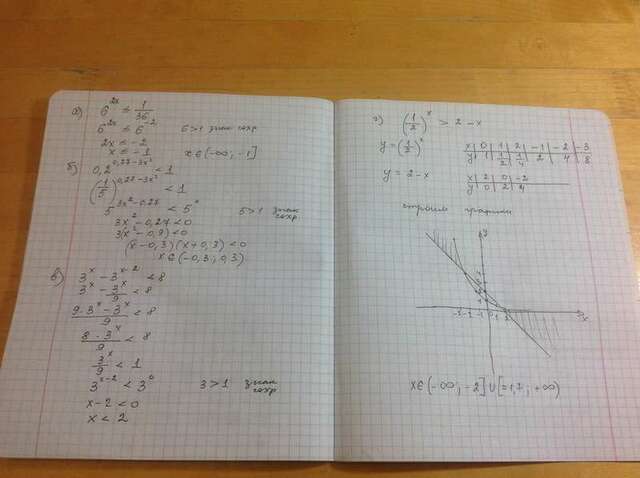 а) 6^{2x} ≤ 1/36
6^{2x} ≤ 6^{-2} 6>1 знак сохр
2x ≤ -2
x ≤ -1 x∈(-∞; -1]
б) 0,2^{0,27-3x²} < 1
(1/5)^{0,27-3x²} < 1
5^{3x²-0,27} < 5^0 5>1 знак сохр
3x²-0,27<0
3(x²-0,9)<0
(x-0,3)(x+0,3)<0
x∈(-0,3; 0,3)
в) 3^x - 3^{x-2} < 8
3^x - 3^x/9 < 8
(9·3^x - 3^x)/9 < 8
(8·3^x)/9 < 8
3^x/9 < 1
3^{x-2} < 3^0 3>1 знак сохр
x-2<0
x < 2
г) (1/2)^x > 2-x
y=(1/2)^x x 0 1 2 -1 -2 -3
y 1 1/2 1/4 2 4 8
y = 2-x x 2 0 -2
y 0 2 4
строим графики
y
-3 -2 -1 0 1 2 x
x∈(-∞; -2]∪[≈1,7; +∞)